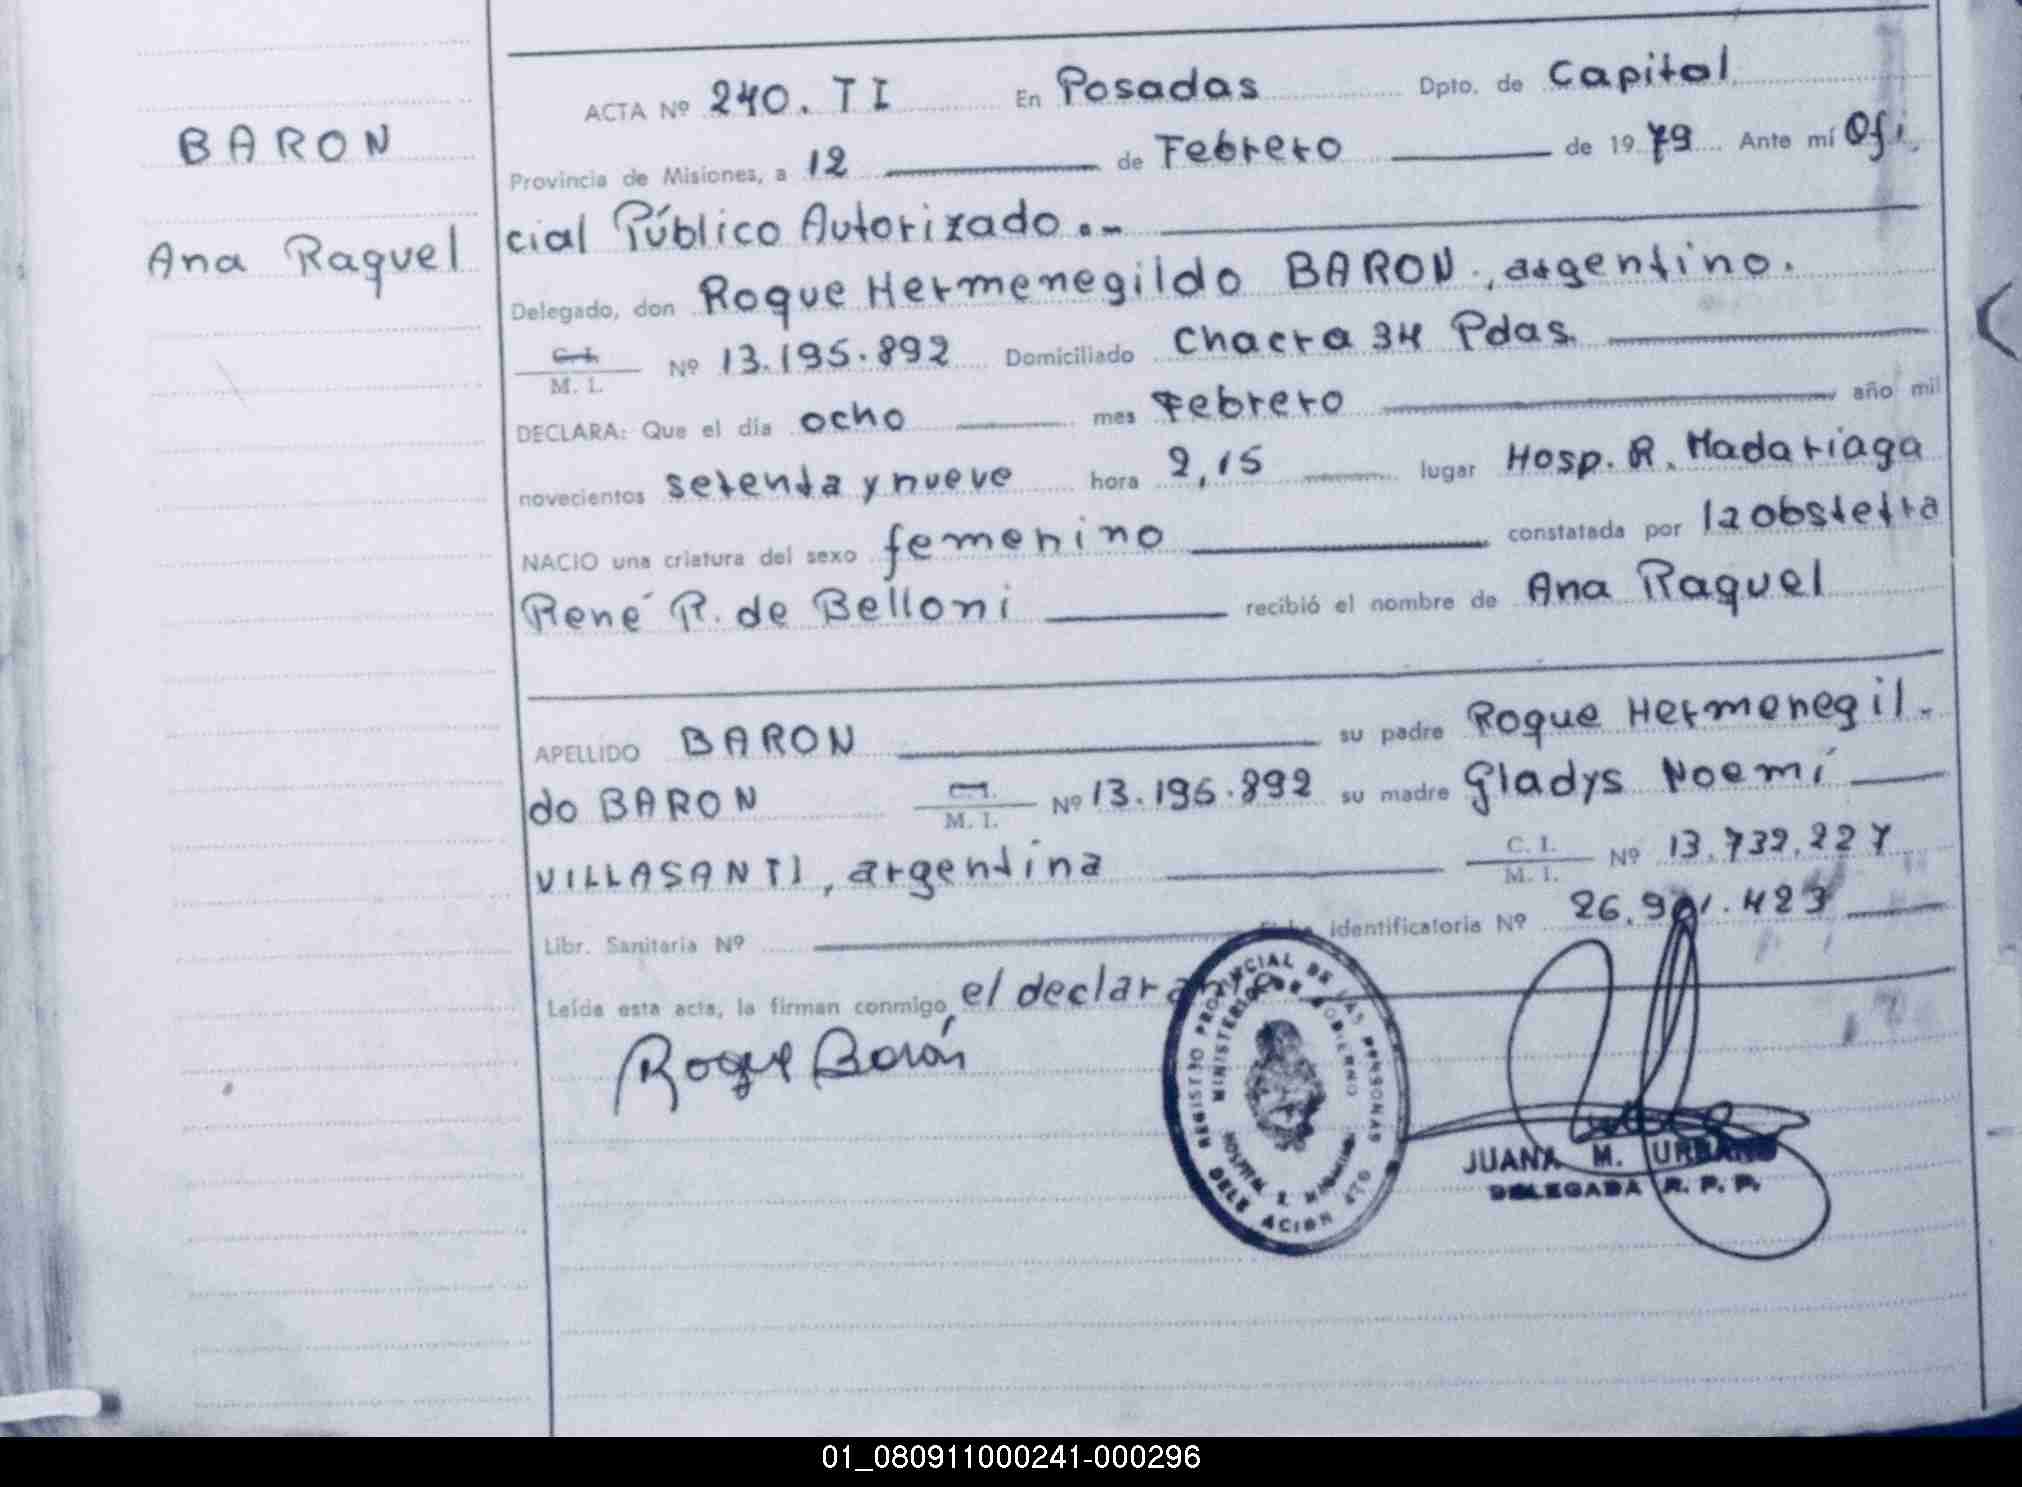 BARON
Ana Raquel
ACTA Nº 240. T I En Posadas Dpto. de Capital
Provincia de Misiones, a 12 de Febrero de 1979 Ante mí Ofi.
cial Público Autorizado.-
Delegado, don Roque Hermenegildo BARON, argentino.
C. I. / M. I. Nº 13.195.892 Domiciliado Chacra 34 Pdas.
DECLARA: Que el día ocho mes Febrero año mil
novecientos setenta y nueve hora 2,15 lugar Hosp. R. Madariaga
NACIO una criatura del sexo femenino constatada por la obstetra
René R. de Belloni recibió el nombre de Ana Raquel
APELLIDO BARON su padre Roque Hermenegil-
do BARON C. I. / M. I. Nº 13.195.892 su madre Gladys Noemí
VILLASANTI, argentina C. I. / M. I. Nº 13.732.227
Libr. Sanitaria Nº identificatoria Nº 26.901.423
Leída esta acta, la firman conmigo, el declarante
Roque Barón
REGISTRO PROVINCIAL DE LAS PERSONAS
MINISTERIO DE GOBIERNO
HOSPITAL R. MADARIAGA
DELEGACION
JUANA M. URBANO
DELEGADA R. P. P.
01_080911000241-000296